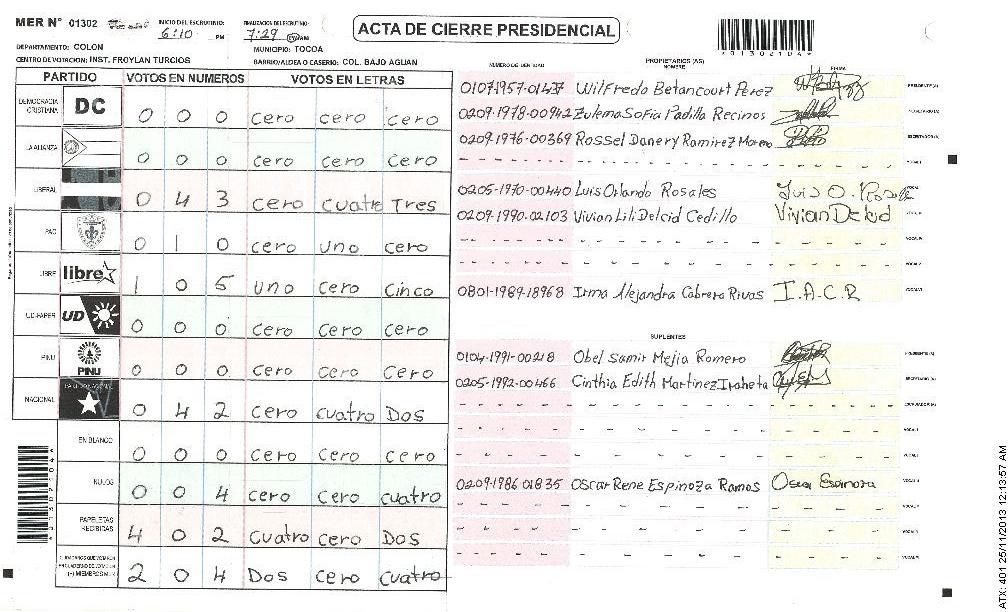 MER Nº 01302
INICIO DEL ESCRUTINIO: 6:10 PM
FINALIZACION DEL ESCRUTINIO: 7:29 PM
ACTA DE CIERRE PRESIDENCIAL
*01302104*
DEPARTAMENTO: COLON
MUNICIPIO: TOCOA
CENTRO DE VOTACION: INST. FROYLAN TURCIOS
BARRIO/ALDEA O CASERIO: COL. BAJO AGUAN
PARTIDO VOTOS EN NUMEROS VOTOS EN LETRAS
DEMOCRACIA CRISTIANA DC 0 0 0 cero cero cero
LA ALIANZA 0 0 0 cero cero cero
LIBERAL 0 4 3 cero cuatro Tres
PAC 0 1 0 cero uno cero
LIBRE libre 1 0 5 uno cero cinco
UD-FAPER UD 0 0 0 cero cero cero
PINU PINU 0 0 0 cero cero cero
NACIONAL 0 4 2 cero cuatro Dos
EN BLANCO 0 0 0 cero cero cero
NULOS 0 0 4 cero cero cuatro
PAPELETAS RECIBIDAS 4 0 2 cuatro cero Dos
CIUDADANOS QUE VOTARON EN CUADERNO DE VOTACION (+) MIEMBROS MER 2 0 4 Dos cero cuatro
PROPIETARIOS (AS)
NUMERO DE IDENTIDAD NOMBRE FIRMA
0107-1957-01437 Wilfredo Betancourt Perez PRESIDENTE (A)
0209-1978-00942 Zulema Sofia Padilla Recinos SECRETARIO (A)
0209-1976-00369 Rossel Danery Ramirez Moreno ESCRUTADOR (A)
VOCAL I
0205-1970-00440 Luis Orlando Rosales Luis O. Rosales
0209-1990-02103 Vivian Lili Delcid Cedillo Vivian Delcid
VOCAL IV
VOCAL V
0801-1989-18968 Irma Alejandra Cabrera Rivas I.A.C.R VOCAL VI
SUPLENTES
0104-1991-00218 Obel Samir Mejia Romero PRESIDENTE (A)
0205-1992-00466 Cinthia Edith Martinez Iraheta SECRETARIO (A)
ESCRUTADOR (A)
VOCAL I
VOCAL II
0209-1986 01835 Oscar Rene Espinoza Ramos Oscar Espinoza
VOCAL IV
VOCAL V
VOCAL VI
*01302104*
ATX: 401 25/11/2013 12:13:57 AM